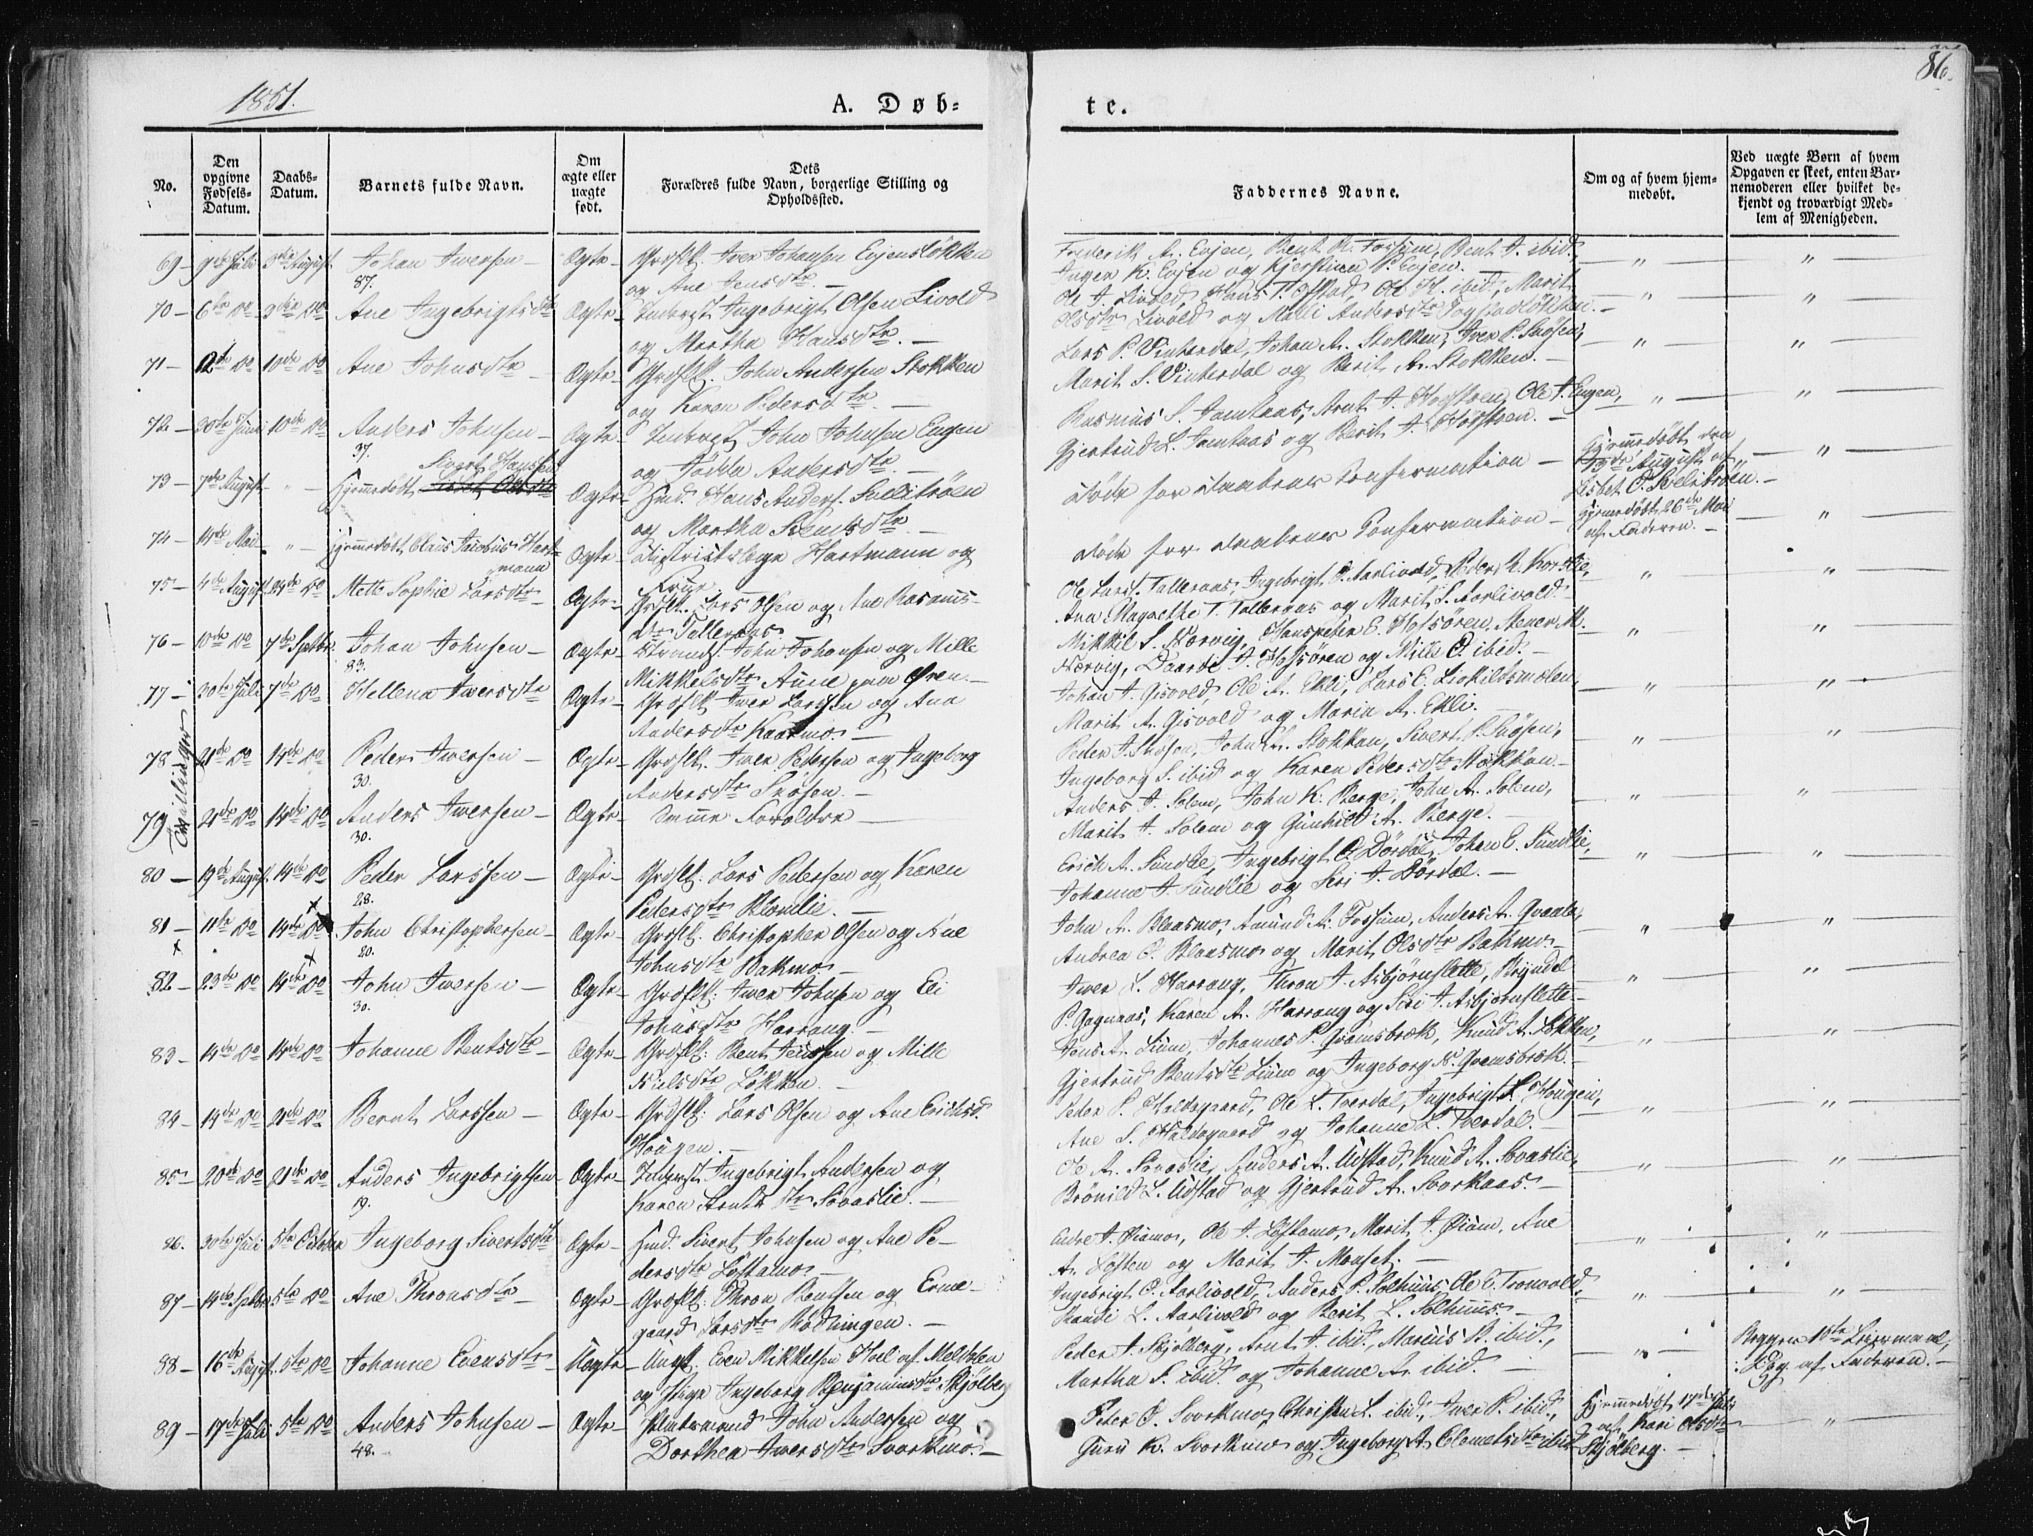 1851.
A. Døb=
te.
86.
No.
Den opgivne Fødsels-Datum.
Daabs-Datum.
Barnets fulde Navn.
Om ægte eller uægte født.
Dets
Forældres fulde Navn, borgerlige Stilling og
Opholdssted.
Faddernes Navne.
Om og af hvem hjem-
medøbt.
Ved uægte Børn af hvem
Opgaven er skeet, enten Bar-
nemoderen eller hvilket be-
kjendt og troværdigt Med-
lem af Menigheden.
69 - 9de Juli 3die August Johan Iversen - Ægte - Grdslk. Iver Johansen Evjensløkken
87. og Ane Jensdtr. -
Frederik A. Evjen, Bent Ol. Fossum, Bent J. ibid.
Inger K. Evjen og Kjerstine P. Evjen. " "
70 - 6te Do 3die Do Ane Ingebrigtsdtr Ægte - Inderst Ingebrigt Olsen Livold
og Martha Hansdtr. -
Ole J. Livold, Hans T. Ofstad, Ole H. ibid, Marit
Olsdtr Livold og Malli Andersdtr " "
71 - 12te Do 10de Do Ane Johnsdtr - Ægte - Grdslk. John Andersen Stokken
og Karen Pedersdtr. -
Lars P. Vinterdal, Johan A. Stokken, Iver P. Snøsen,
Marit S. Vinterdal og Berit A. Stokken. - " "
72 - 30te Juni 10de Do Anders Johnsen - Ægte - Inderst John Johnsen Engen
37. og Andersdtr -
Rasmus S. Jamtaas, Arnt J. Høisteen, Ole J. Engen,
Gjertrud L. Jamtaas og Berit J. Høisteen. - " "
73 - 7de August " - Hjemmedøbt Sivert Hansen Ægte - Hmd. Hans Anders.
og Martha Bentsdtr
Døde før Daabens Confermation -
Hjemmedøbt den
13de August af
Lisbet O. - "
74 - 14de Mai " - Hjemmedøbt, Claus Jacobus Hart-
mann Ægte - Districtslæge Hartmann og
Frue
Døde før Daabens Confermation -
Hjemmedøbt 26de Mai
af Faderen. - "
75 - 4de August 24de Do Mette Sophie Larsdtr Ægte - Grdslk. Lars Olsen og Ane Rasmus-
dtr Tülleraas
Ole Larst. Tülleraas, Ingebrigt O. Aarlivold, Peder
Ana Magrethe T. Tülleraas og Marit S. Aarlivold - " "
76 - 10de Do 7de Septbr. Johan Johnsen - Ægte - Strands. John Johansen og Mille
83. Mikkelsdtr Aune paa Øren. -
Mikkel S. Nærvig, Hanspeter E. Hofsøren, Stener M.
Nærvig, J. Hofsøren og Mille O. ibid. - " "
77 - 30te Juli 7de Do Hellena Iversdtr Ægte - Grdslk. Iver Larsen og Ana
Andersdtr Kaarmo -
Johan J. Gisvold, Ole A. Ekli, Lars E.
Marit A. Gisvold og Maria A. Ekli. - " "
Tvillinger
78 - 21de Do 14de Do Peder Iversen - Ægte - Grdslk. Iver Pedersen og Ingeborg
30. Andersdtr Snøsen. -
Peder J. Snøsen, John A. Stokkan, Sivert P. Snøsen,
Ingeborg S. ibid og Karen Pedersdtr Stokkan - " "
79 - 21de Do 14de Do Anders Iversen - Ægte - Samme Forældre -
30.
Anders J. Solem, John K. Berge, John A. Solem,
Marit J. Solem og Gunhild A. Berge. - " "
80 - 19de August 14de Do Peder Larssen - Ægte - Grdslk. Lars Pedersen og Karen
28. Pedersdtr Blomlie. -
Erich A. Sundlie, Ingebrigt O. Dørdal, Johan E. Sundlie,
Johanne J. Sundlie og Siri J. Dørdal. - " "
81 - 11te Do 14de Do John Christophersen - Ægte - Grdslk. Christopher Olsen og Ane
20. Johnsdtr Bakmo -
John A. Blaasmo, Amund A. Fossum, Anders A. Qvaale,
Andrea O. Blaasmo og Marit Olsdtr Bakmo - " "
82 - 23de Do 14de Do John Iversen - Ægte - Grdslk. Iver Johnsen og Eli
30. Johnsdtr Harrang. -
Iver L. Harrang, Thron J. Asbjørnslette, Bryndel
P. Gagnaas, Karen A. Harrang og Siri J. Asbjørnslette - " "
83 - 14de Do 14de Do Johanne Bentsdtr Ægte - Grdslk: Bent Jenssen og Mille
Nielsdtr Løkken. -
Jens A. Lium, Johannes P. Qvamsbræk, Knud A. Løkken,
Gjertrud Bentsdtr Lium og Ingeborg N. Qvamsbræk. " "
84 - 14de Do 21de Do Bernt Larssen - Ægte - Grdslk: Lars Olsen og Ane Erichsd.
Hougen. -
Peder P. Haldsgaard, Ole L. Tverdal, Ingebrigt L. Hougen,
Ane S. Haldsgaard og Johanne L. Tverdal. - " "
85 - 20de Do 21de Do Anders Ingebrigtsen Ægte - Inderst Ingebrigt Andersen og
19. Karen Arntsdtr Sovaslie. -
Ole A. Sovaslie, Anders A. Udstad, Knud A. Sovaslie,
Brønild L. Udstad og Gjertrud A. Svorkaas. - " "
86. 30te Juli 5te October Ingeborg Sivertsdtr Ægte - Hmd. Sivert Johnsen og Ane Pe-
dersdtr Løftamo -
Endre J. Hiamo, Ole J. Løftamo, Marit J. Øiam, Ane
A. Løften og Marit J. Monset. - " "
87 - 14de Septbr 5te Do Ane Thronsdtr - Ægte - Grdslk: Thron Bentsen og Erme-
gaard Larsdtr Rødningen. -
Ingebrigt O. Aarlivold, Anders P. Solhuus, Ole E. Tronvold,
Randi L. Aarlivold og Berit L. Solhuus. - " "
88 - 16de August 5te Do Johanne Evensdtr - Uægte Ungk. Even Mikkelsen Hoel af Meldalen
og Pige Ingeborg Benjaminsdtr Skjølberg
Peder A. Skjølberg, Arnt J. ibid, Marcus B. ibid,
Martha S. ibid og Johanne A. ibid. - "
Begges 1ste Leiermaal,
Opg. af Faderen. -
89 - 17de Juli 5te Do Anders Johnsen - Ægte - Huusmand John Andersen og
48. Dorthea Iversdtr Svorkmo. -
Peder O. Svorkmo, Christen A. ibid, Iver P. ibid,
Guru K. Svorkmo og Ingeborg A. Clemetsdtr ibid
Hjemmedøbt 17de Juli
af Kari Olsdtr
Skjølberg. - "